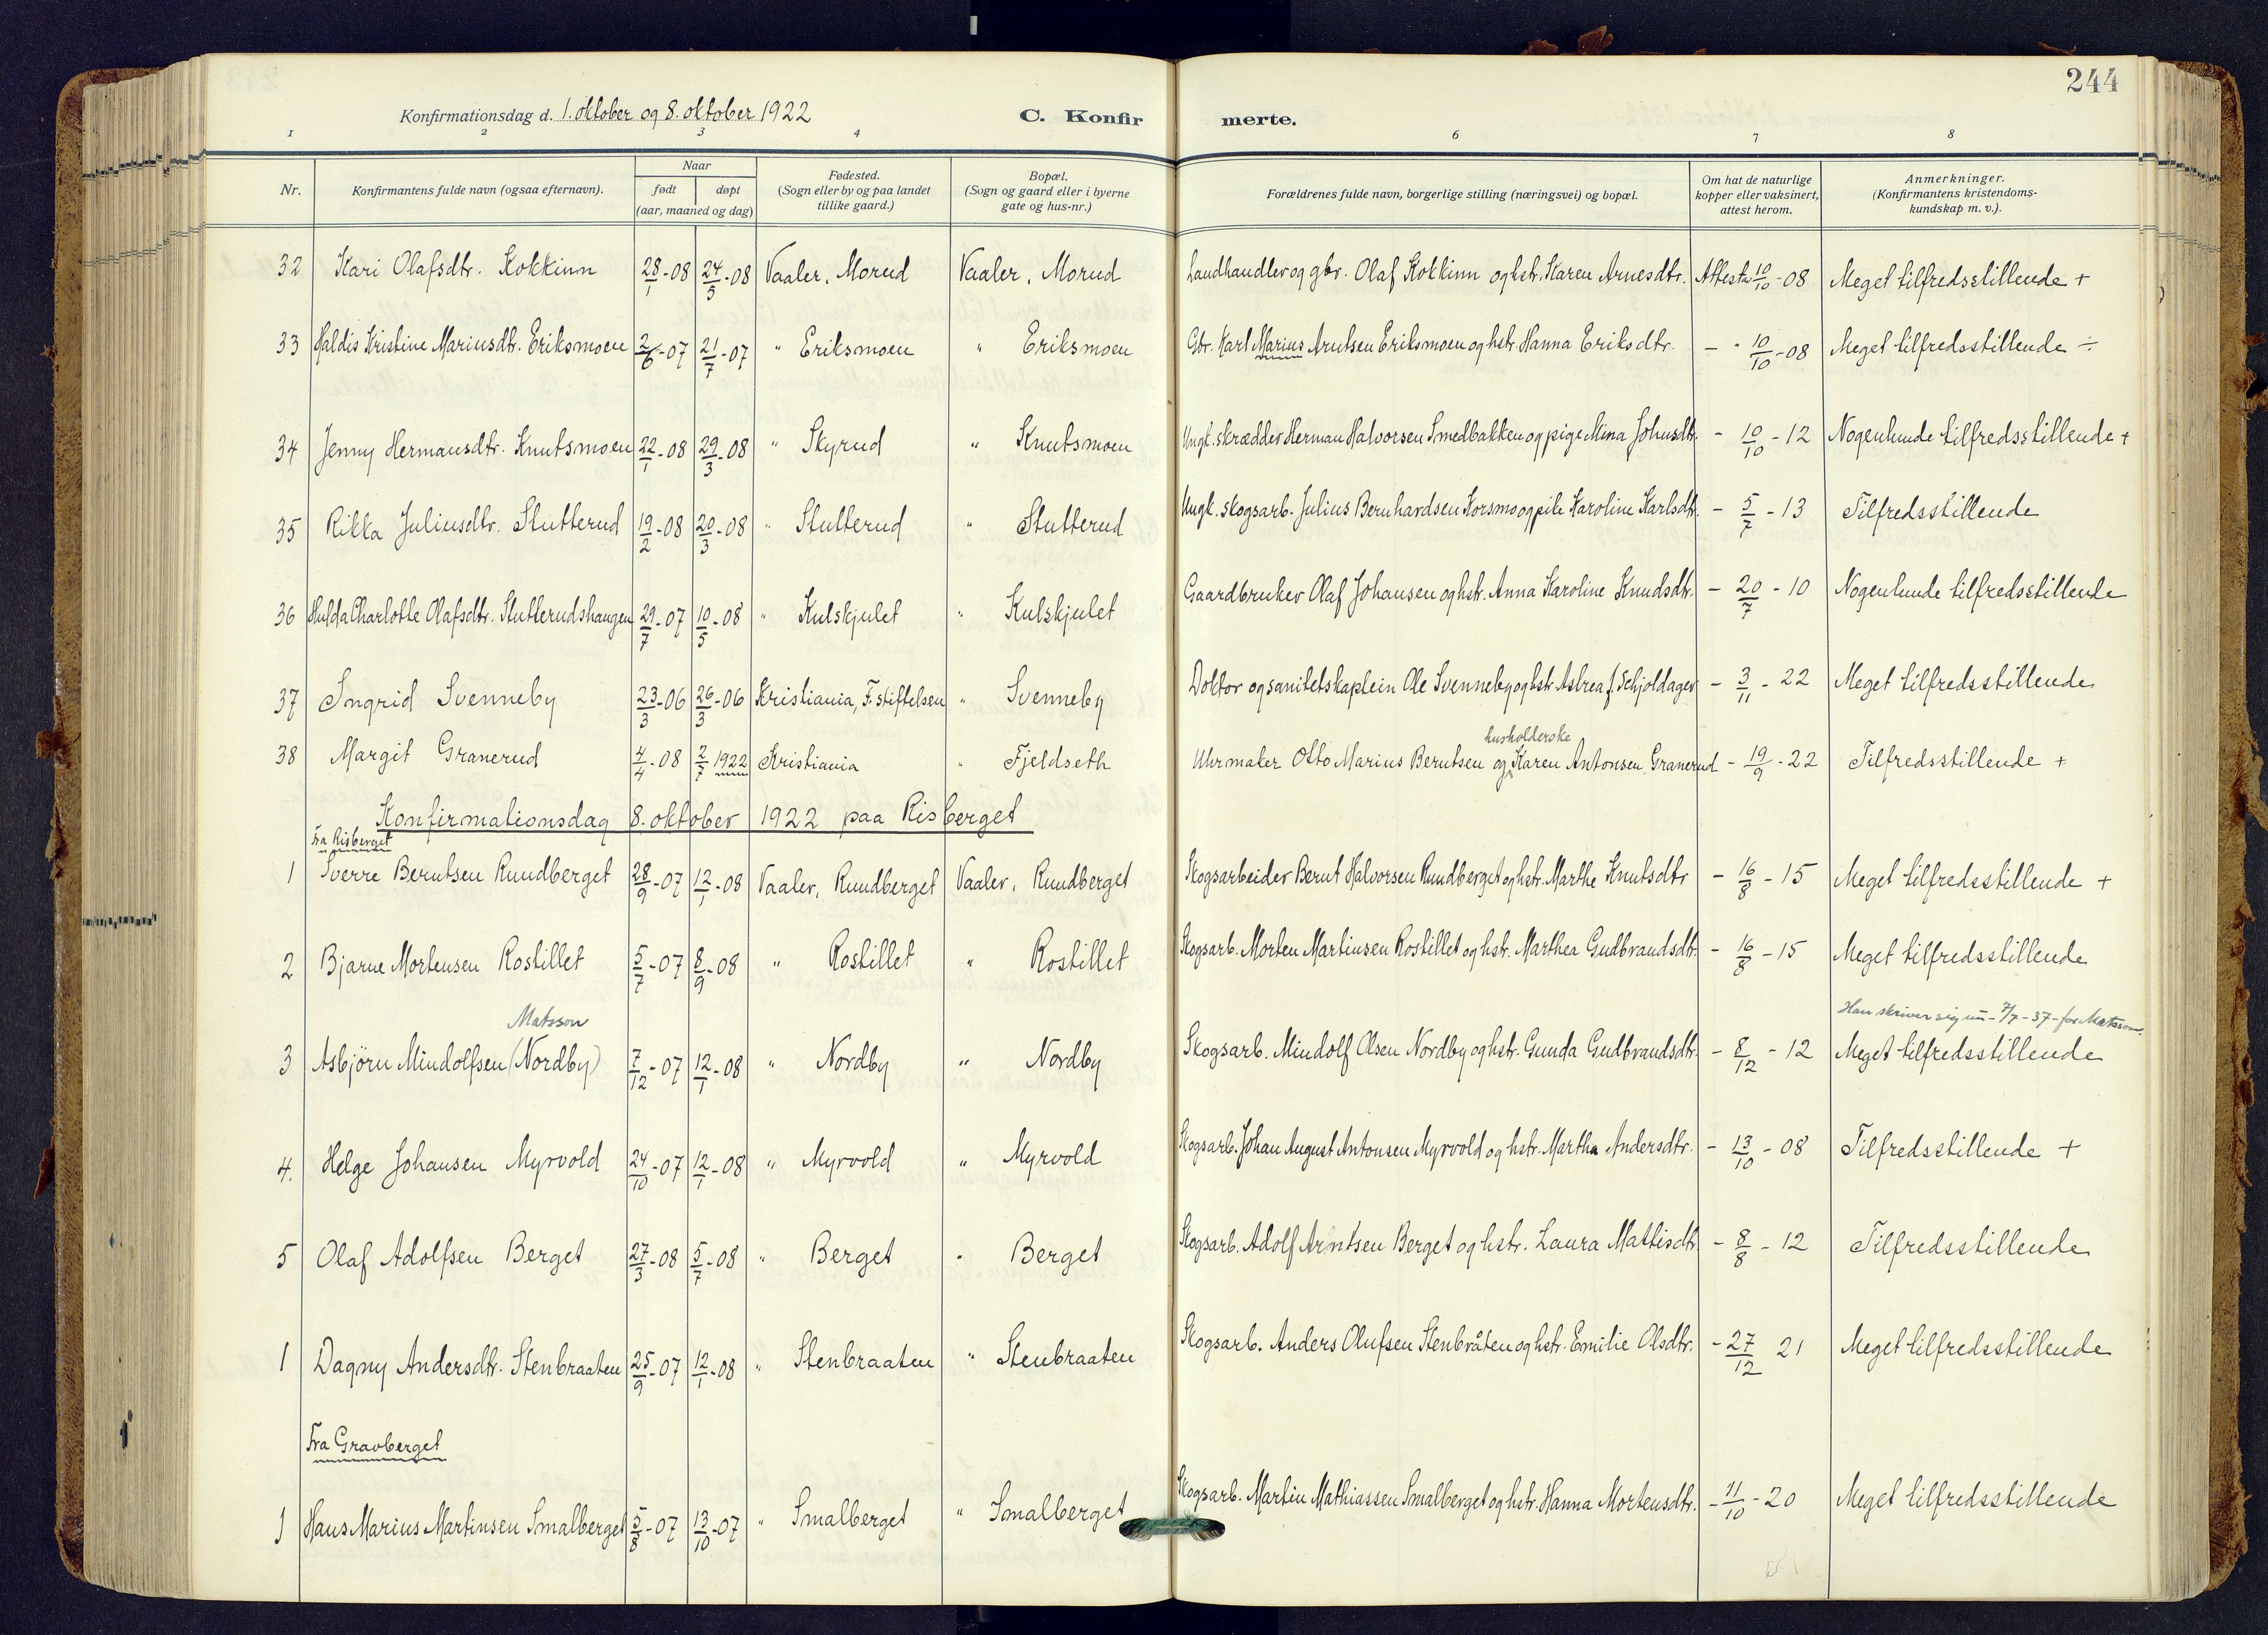 244
Konfirmationsdag d. 1. oktober og 8. oktober 1922 C. Konfir merte.
1 2 3 4 6 7 8
Nr. Konfirmantens fulde navn (ogsaa efternavn). Naar født døpt (aar, maaned og dag) Fødested. (Sogn eller by og paa landet tillike gaard.) Bopæl. (Sogn og gaard eller i byerne gate og hus-nr.) Forældrenes fulde navn, borgerlige stilling (næringsvei) og bopæl. Om hat de naturlige kopper eller vaksinert, attest herom. Anmerkninger. (Konfirmantens kristendoms-kundskap m. v.).
32 Kari Olafsdtr. Kokkinn 28/1-08 24/5-08 Vaaler, Morud Vaaler, Morud Landhandler og gbr. Olaf Kokkinn og hstr. Karen Arnesdtr. Attest 10/10-08 Meget tilfredsstillende +
33 Haldis Kristine Mariusdtr. Eriksmoen 2/6-07 21/7-07 " Eriksmoen " Eriksmoen Gbr. Karl Marius Arntsen Eriksmoen og hstr. Hanna Eriksdtr. - " 10/10-08 Meget tilfredsstillende ÷
34 Jenny Hermansdtr. Knutsmoen 22/1-08 29/3-08 " Skyrud " Knutsmoen Ungk. skrædder Herman Halvorsen Smedbakken og pige Mina Johnsdtr. - 10/10-12 Nogenlunde tilfredsstillende +
35 Rikka Juliusdtr. Stutterud 19/2-08 20/3-08 " Stutterud " Stutterud Ungk. skogsarb. Julius Bernhardsen Korsmo og pike Karoline Karlsdtr. - 5/7-13 Tilfredsstillende
36 Hulda Charlotte Olafsdtr. Stutterudshaugen 29/7-07 10/5-08 " Kulskjulet " Kulskjulet Gaardbruker Olaf Johansen og hstr. Anna Karoline Knudsdtr. - 20/7-10 Nogenlunde tilfredsstillende
37 Ingrid Svenneby 23/3-06 26/3-06 Kristiania, F. stiftelsen " Svenneby Doktor og sanitetskaptein Ole Svenneby og hstr. Astrea f. Schjoldager - 3/11-22 Meget tilfredsstillende
husholderske
38 Margit Granerud 4/4-08 2/7 1922 Kristiania " Fjeldseth Uhrmaker Otto Marius Berntsen og Karen Antonsen Granerud - 19/9-22 Tilfredsstillende +
Konfirmationsdag 8. oktober 1922 paa Risberget
Fra Risberget
1 Sverre Berntsen Rundberget 28/9-07 12/1-08 Vaaler, Rundberget Vaaler, Rundberget Skogsarbeider Bernt Halvorsen Rundberget og hstr. Marthe Knutsdtr - 16/8-15 Meget tilfredsstillende +
2 Bjarne Mortensen Rostillet 5/7-07 8/9-08 " Rostillet " Rostillet Skogsarb. Morten Martinsen Rostillet og hstr. Marthea Gudbrandsdtr. - 16/8-15 Meget tilfredsstillende
Matsson Han skriver sig nu - 7/7-37 - for Matsson
3 Asbjörn Mindolfsen (Nordby) 7/12-07 12/1-08 " Nordby " Nordby Skogsarb. Mindolf Olsen Nordby og hstr. Gunda Gudbrandsdtr. - 8/12-12 Meget tilfredsstillende
4. Helge Johansen Myrvold 24/10-07 12/1-08 " Myrvold " Myrvold Skogsarb. Johan August Antonsen Myrvold og hstr. Martha Andersdtr. - 13/10-08 Tilfredsstillende +
5 Olaf Adolfsen Berget 27/3-08 5/7-08 " Berget " Berget Skogsarb. Adolf Arntsen Berget og hstr. Laura Mattisdtr. - 8/8-12 Tilfredsstillende
1 Dagny Andersdtr. Stenbraaten 25/9-07 12/1-08 " Stenbraaten " Stenbraaten Skogsarb. Anders Olufsen Stenbråten og hstr. Emilie Olsdtr. - 27/12 21 Meget tilfredsstillende
Fra Gravberget
1 Hans Marius Martinsen Smalberget 5/8-07 13/10-07 " Smalberget " Smalberget Skogsarb. Martin Mathiassen Smalberget og hstr. Hanna Mortensdtr. - 11/10-20 Meget tilfredsstillende